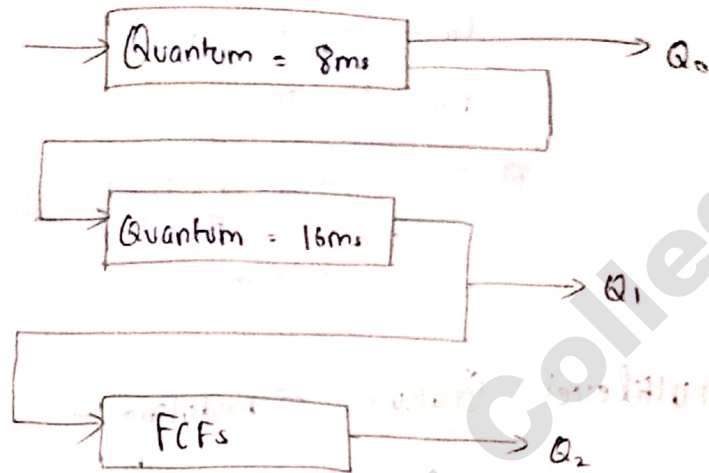 Quantum = 8ms
Q0
Quantum = 16ms
Q1
FCFs
Q2
Colle